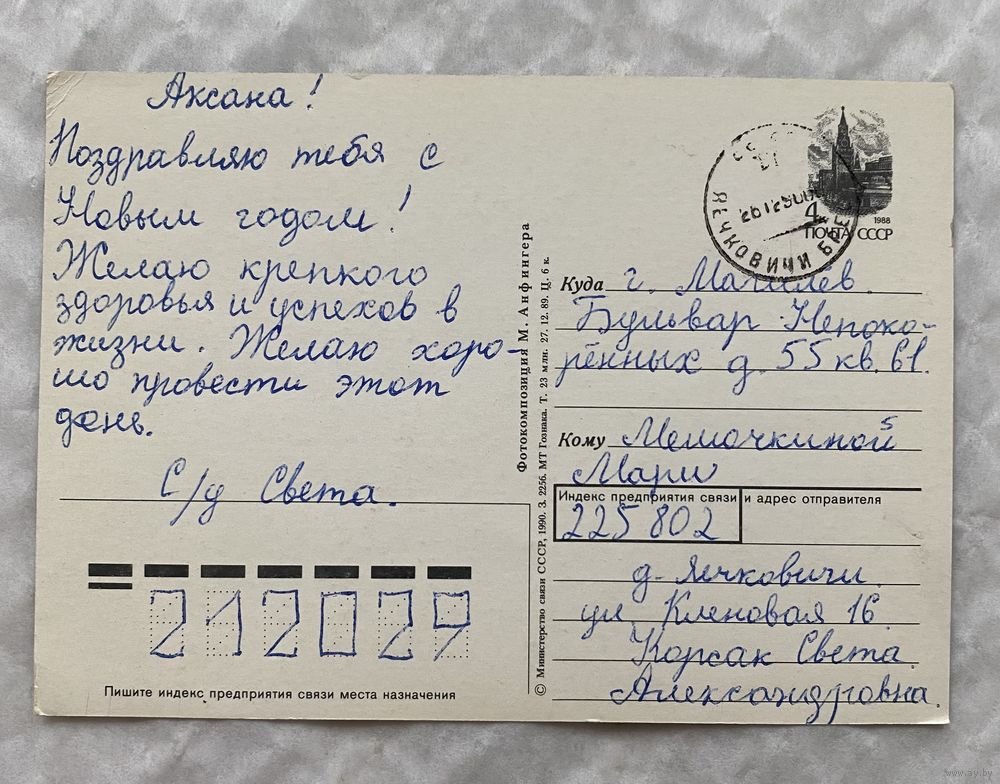 Аксана!
Поздравляю тебя с
Новым годом!
Желаю крепкого
здоровья и успехов в
жизни. Желаю хоро-
шо провести этот
день.
С/у Света.
212029
Пишите индекс предприятия связи места назначения
Фотокомпозиция М. Анфингера
© Министерство связи СССР, 1990. З. 2256. МТ Гознака. Т. 23 млн. 27. 12. 89. Ц. 6 к.
4к
1988
ПОЧТА СССР
ЯЕЧКОВИЧИ
Куда г. Могилёв.
Бульвар Непоко-
рённых д. 55 кв. 61.
Кому Мемочкиной
Мари
Индекс предприятия связи и адрес отправителя
225 802
д. Яечковичи.
ул Кленовая 16
Корсак Света
Александровна.
www.ay.by